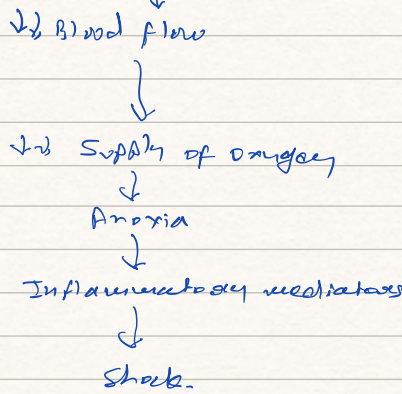 ↓↓ Blood flow
↓
↓↓ Supply of oxygen
↓
Anoxia
↓
Inflammatory mediators
↓
Shock.